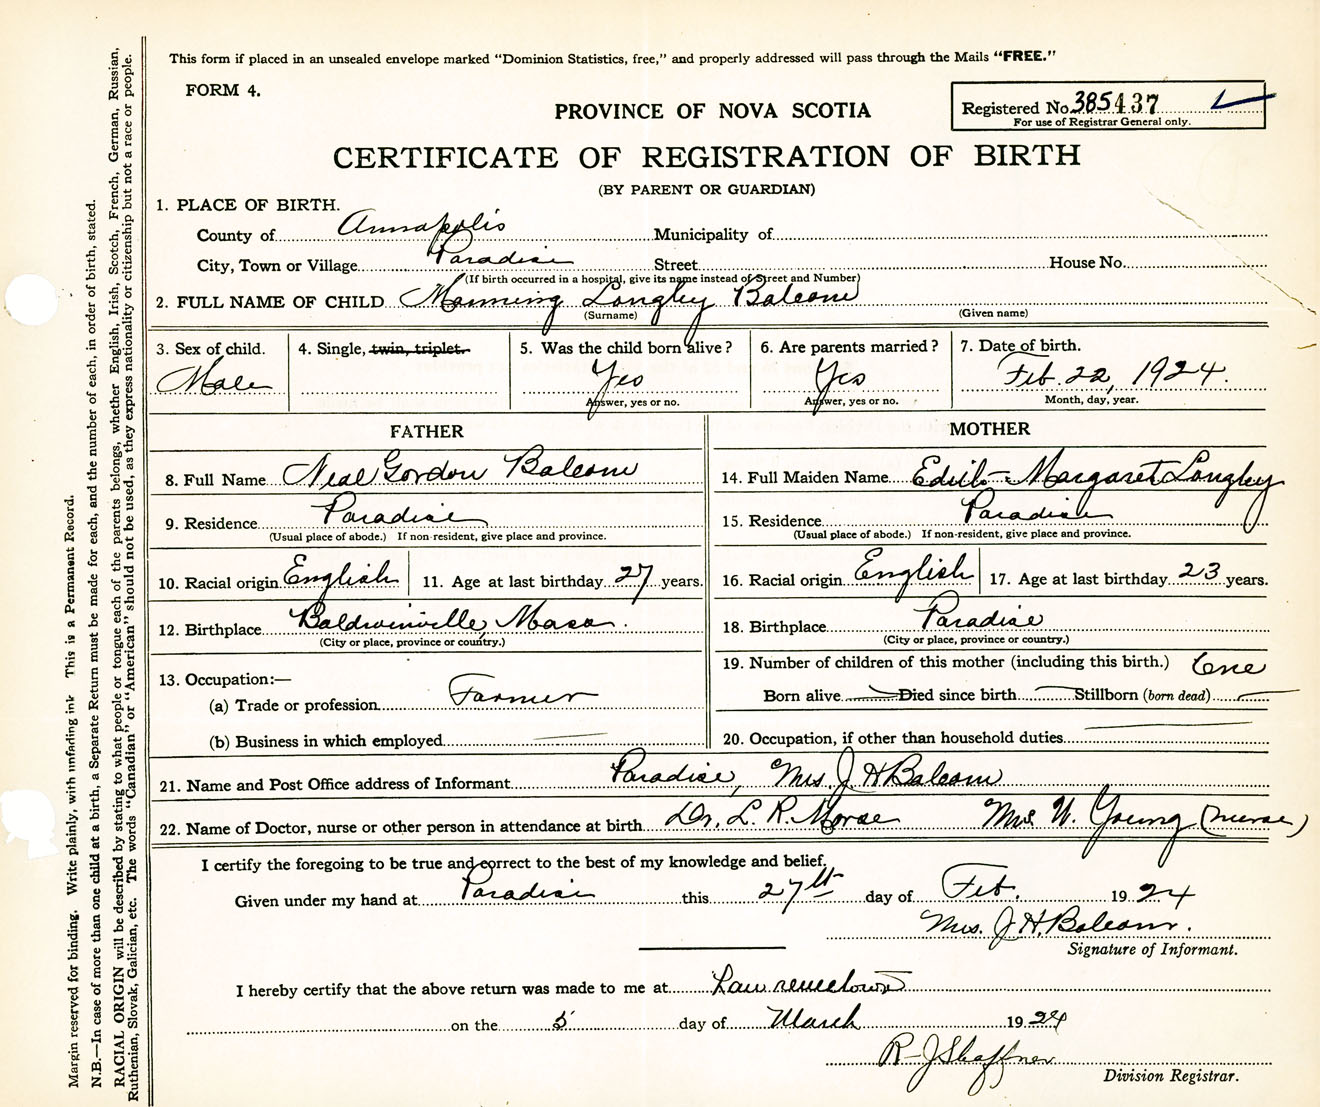 This form if placed in an unsealed envelope marked “Dominion Statistics, free,” and properly addressed will pass through the Mails “FREE.”
FORM 4.
PROVINCE OF NOVA SCOTIA
Registered No. 385437
For use of Registrar General only.
CERTIFICATE OF REGISTRATION OF BIRTH
(BY PARENT OR GUARDIAN)
1. PLACE OF BIRTH.
County of Annapolis Municipality of
City, Town or Village Paradise Street House No.
(If birth occurred in a hospital, give its name instead of Street and Number)
2. FULL NAME OF CHILD Manning Longley Balcom
(Surname) (Given name)
3. Sex of child. Male
4. Single, twin, triplet.
5. Was the child born alive? Yes
Answer, yes or no.
6. Are parents married? Yes
Answer, yes or no.
7. Date of birth. Feb. 22, 1924.
Month, day, year.
FATHER
8. Full Name Neal Gordon Balcom
9. Residence Paradise
(Usual place of abode.) If non-resident, give place and province.
10. Racial origin English 11. Age at last birthday 27 years.
12. Birthplace Baldwinville, Mass.
(City or place, province or country.)
13. Occupation:—
(a) Trade or profession Farmer
(b) Business in which employed
MOTHER
14. Full Maiden Name Edith Margaret Longley
15. Residence Paradise
(Usual place of abode.) If non-resident, give place and province.
16. Racial origin English 17. Age at last birthday 23 years.
18. Birthplace Paradise
(City or place, province or country.)
19. Number of children of this mother (including this birth.) One
Born alive Died since birth Stillborn (born dead)
20. Occupation, if other than household duties
21. Name and Post Office address of Informant Paradise, Mrs. J. H Balcom
22. Name of Doctor, nurse or other person in attendance at birth Dr. L. R. Morse Mrs W. Young (nurse)
I certify the foregoing to be true and correct to the best of my knowledge and belief.
Given under my hand at Paradise this 27th day of Feb. 1924
Mrs. J. H. Balcom.
Signature of Informant.
I hereby certify that the above return was made to me at Lawrencetown
on the 5 day of March 1924
R J Shaffner
Division Registrar.
Margin reserved for binding. Write plainly, with unfading ink This is a Permanent Record.
N.B.—In case of more than one child at a birth, a Separate Return must be made for each, and the number of each, in order of birth, stated.
RACIAL ORIGIN will be described by stating to what people or tongue each of the parents belongs, whether English, Irish, Scotch, French, German, Russian,
Ruthenian, Slovak, Galician, etc. The words “Canadian” or “American” should not be used, as they express nationality or citizenship but not a race or people.